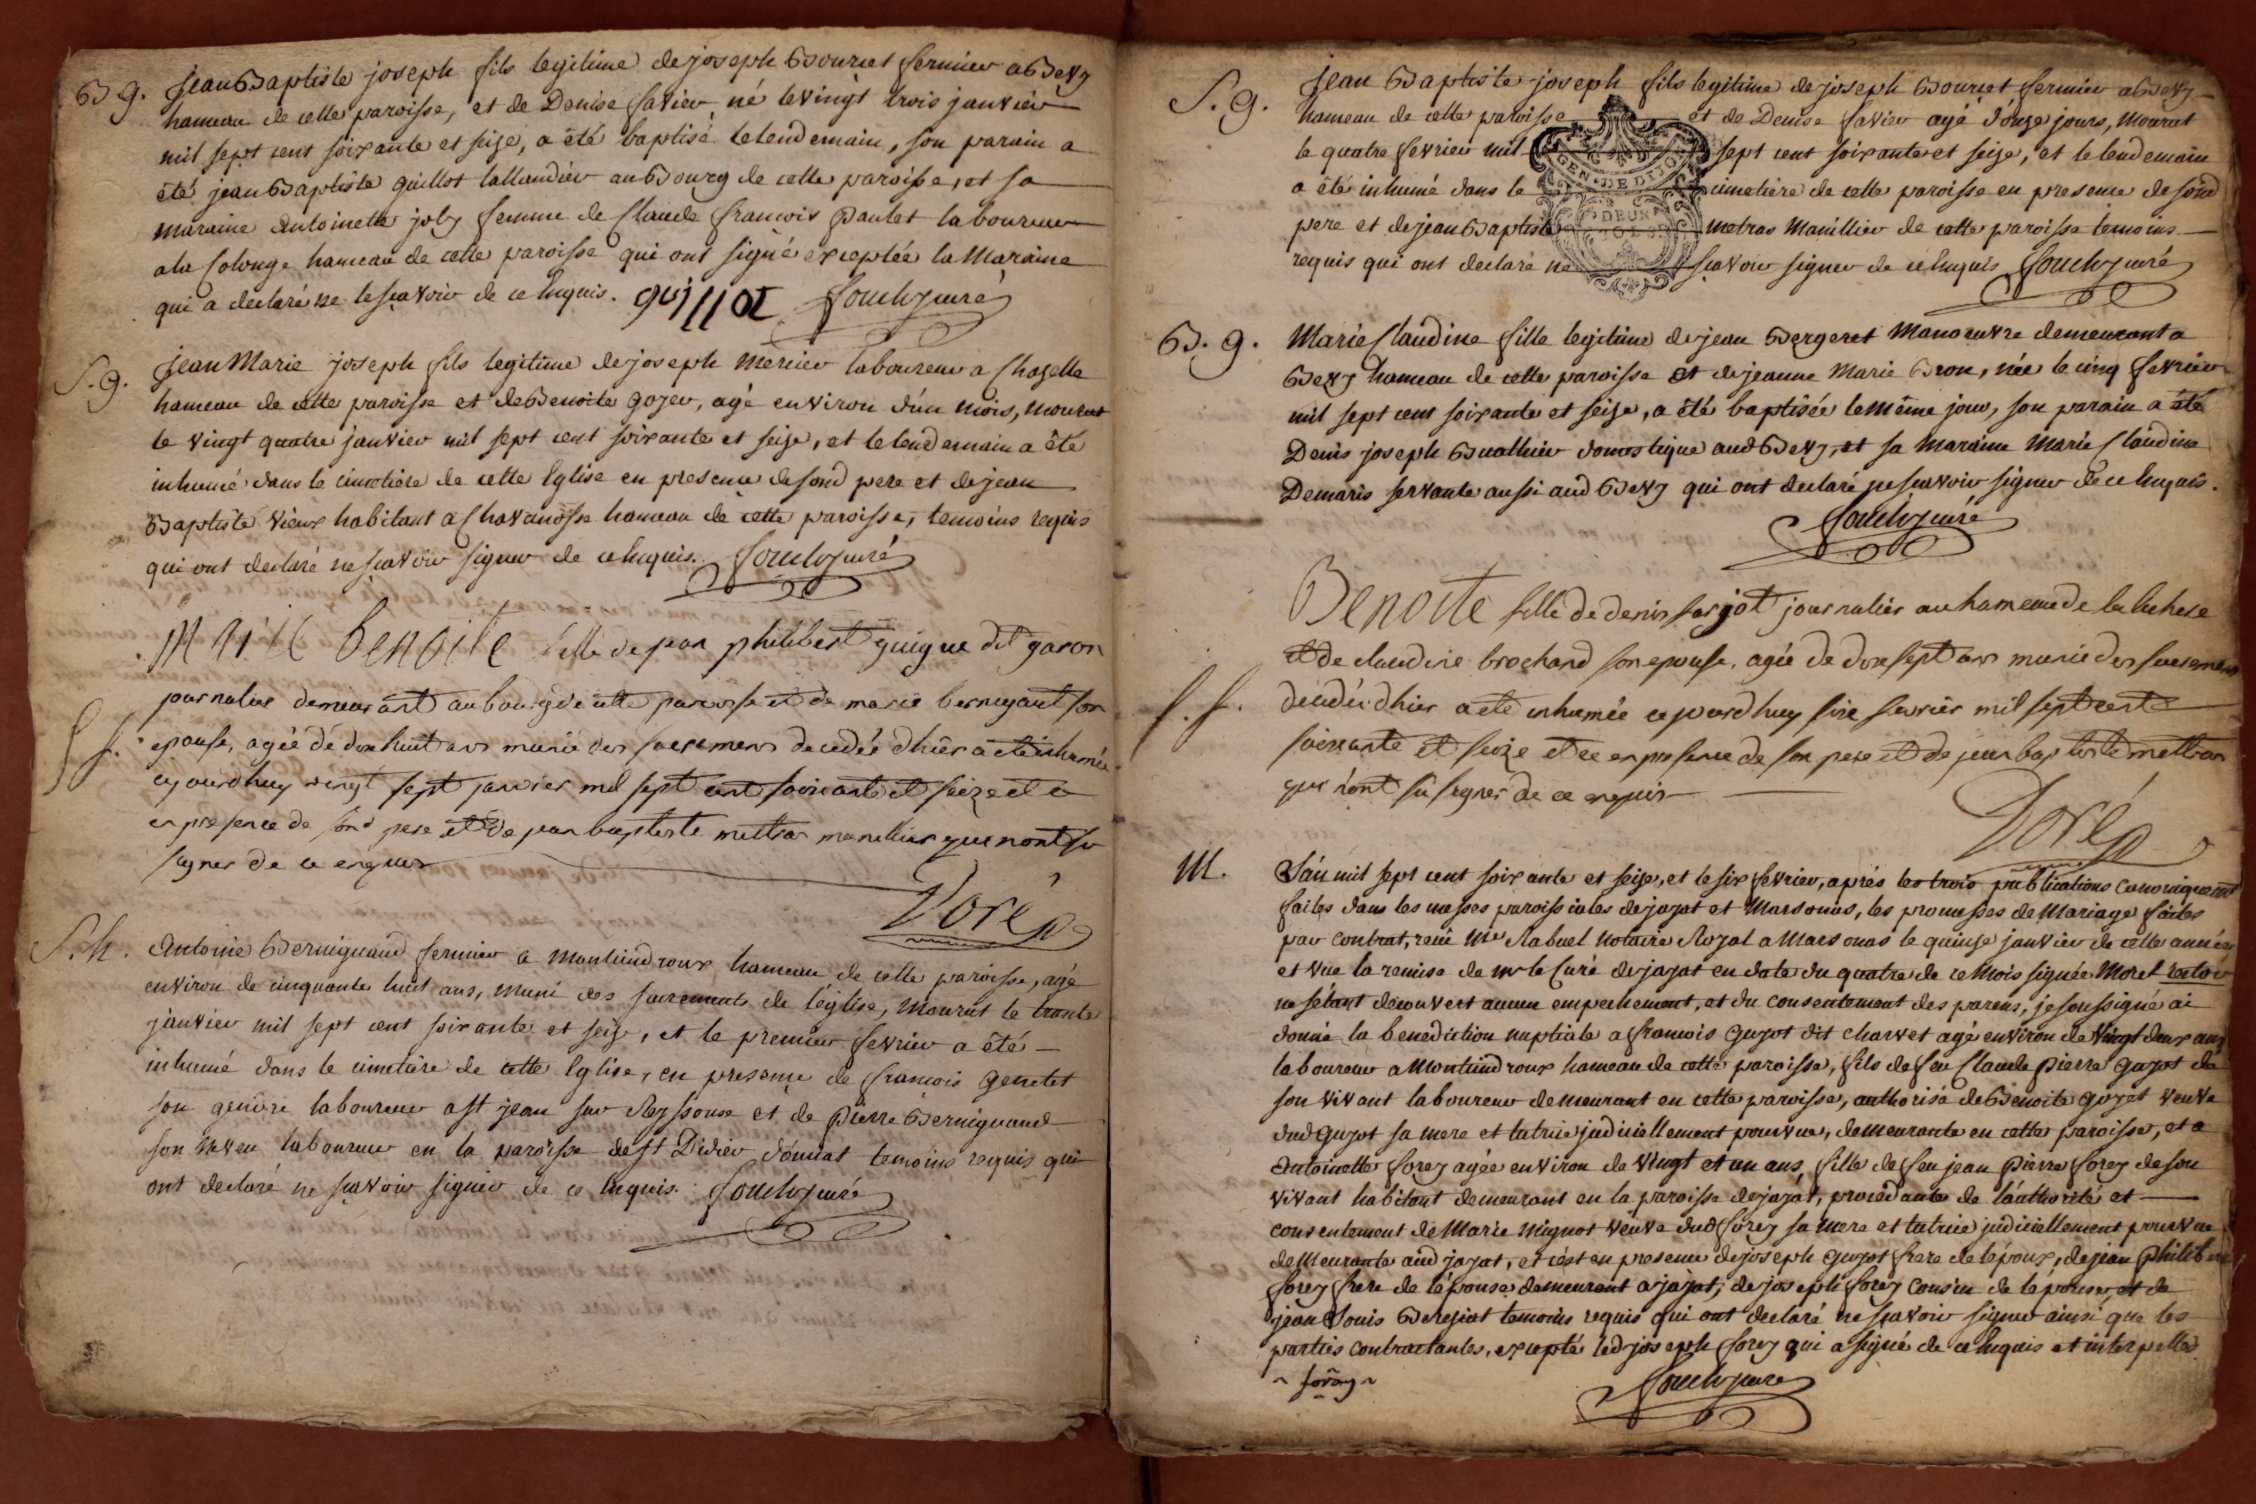 B g. Jean Baptiste joseph fils legitime de joseph Bourcet fermier a Bevy
hameau de cette paroisse, et de Denise favier né le vingt trois janvier
mil sept cent soixante et seize, a été baptisé le lendemain, son parain a
été jean Baptiste guillot taillandier au Bourg de cette paroisse, et sa
maraine antoinette joly femme de Claude francois Pautet laboureur
a la Colonge hameau de cette paroisse qui ont signé exceptée la Maraine
qui a declaré ne le scavoir de ce Enquis. guillot
S. g. Jean Marie joseph fils legitime de joseph Mercier laboureur a Chazelle
hameau de cette paroisse et de Benoite goyer, agé environ d'un mois, mourut
le vingt quatre janvier mil sept cent soixante et seize, et le lendemain a été
inhumé dans le cimetiere de cette Eglise en presence desond pere et de jean
Baptiste vieux habitant a Chavanosse hameau de cette paroisse, temoins requis
qui ont declaré ne scavoir signer de ce Enquis.
Marie Benoite fille de jean philibert guigue dit garon
journalier demeurant au bourg de cette paroisse et de marie bernigaut son
epouse, agée de dix huit ans munie des sacremens decedée d'hier a été inhumée
cejourdhuy vingt sept janvier mil sept cent soixante et seize et ce
en presence de sond pere et de jean baptiste mettras manillier qui n'ont su
signer de ce enquis
Doré
S. h. Antoine Berniguaud fermier a Montindroux hameau de cette paroisse, agé
environ de cinquante huit ans, muni des sacrements de l'église, mourut le trente
janvier mil sept cent soixante et seize, et le premier fevrier a été
inhumé dans le cimetiere de cette Eglise, en presence de francois genetet
son gendre laboureur a St jean sur Reyssouse et de Pierre Berniguaud
son neveu laboureur en la paroisse de St Didier d'aussiat temoins requis qui
ont declaré ne scavoir signer de ce Enquis.
S. g. Jean Baptiste joseph fils legitime de joseph Bourcet fermier a Bevy
hameau de cette paroisse et de Denise favier agé d'onze jours, mourut
le quatre fevrier mil sept cent soixante et seize, et le lendemain
a été inhumé dans le cimetiere de cette paroisse en presence de sond
pere et de jean Baptiste metras Manillier de cette paroisse temoins
requis qui ont declaré ne scavoir signer de ce Enquis
GEN. DE DIJON
DEUX
B. g. Marie Claudine fille legitime de jean Bergeret Manoeuvre demeurant a
Bevy hameau de cette paroisse et de jeanne Marie Bron, née le cinq fevrier
mil sept cent soixante et seize, a été baptisée le même jour, son parain a été
Denis joseph Buathier domestique aud Bevy, et sa Maraine Marie Claudine
Demaris servante aussi aud Bevy qui ont declaré ne scavoir signer de ce Enquis.
Benoite fille de denis journalier au hameau de
et de claudine brochand son epouse, agée de dix sept ans munie des sacremens
decedée d'hier a été inhumée cejourdhuy six fevrier mil sept cent
soixante et seize et ce en presence de son pere et de jean baptiste mettras
qui n'ont su signer de ce enquis
Doré
M. L'an mil sept cent soixante et seize, et le six fevrier, après les trois publications canoniquement
faites dans les messes paroissiales de jayat et Marsonas, les promesses de Mariage faites
par contrat, recu Me Rabuel Notaire Royal a Marsonas le quinze janvier de cette année
et vue la remise de mr le Curé de jayat en date du quatre de ce Mois signée Morel
ne s'étant decouvert aucun empechement, et du consentement des parens, je soussigné ai
donné la benediction nuptiale a francois guyot dit charvet agé environ de vingt deux ans
laboureur a Montindroux hameau de cette paroisse, fils de feu Claude Pierre guyot de
son vivant laboureur demeurant en cette paroisse, authorisé de Benoite goyet veuve
dud guyot sa mere et tutrice judiciellement pourvue, demeurante en cette paroisse, et a
Antoinette forey agée environ de vingt et un ans, fille de feu jean Pierre forey de son
vivant habitant demeurant en la paroisse de jayat, procedante de l'authorité et
consentement de Marie Mignot veuve dud forey sa mere et tutrice judiciellement pourvue
demeurante aud jayat, et c'est en presence de joseph guyot frere de l'époux, de jean Philibert
forey frere de l'épouse demeurant a jayat, de joseph forey cousin de l'épouse, et de
jean Louis temoins requis qui ont declaré ne scavoir signer ainsi que les
parties contractantes, excepté led joseph forey qui a signé de ce Enquis et interpellé
foray